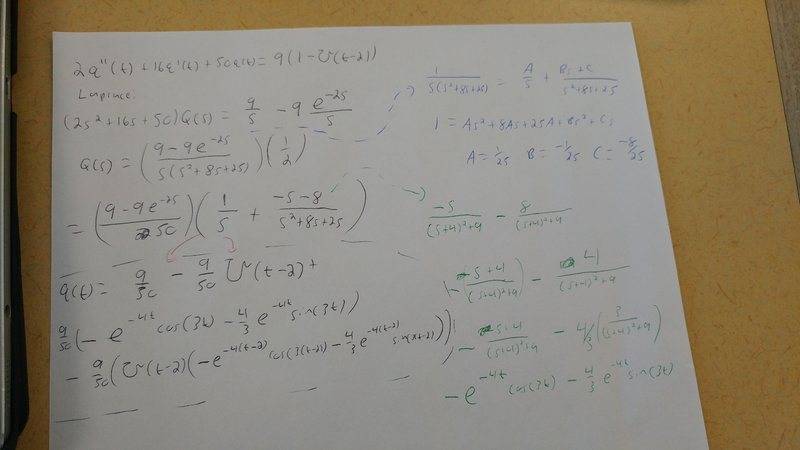 2q''(t) + 16q'(t) + 50q(t) = 9(1-U(t-2))
Laplace
(2s²+16s+50)Q(s) = 9/s - 9 e^{-2s}/s
Q(s) = ((9-9e^{-2s})/(s(s²+8s+25)))(1/2)
= ((9-9e^{-2s})/50)(1/s + (-s-8)/(s²+8s+25))
q(t) = 9/50 - 9/50 U(t-2) +
9/50(-e^{-4t} cos(3t) - 4/3 e^{-4t} sin(3t))
- 9/50(U(t-2)(-e^{-4(t-2)} cos(3(t-2)) - 4/3 e^{-4(t-2)} sin(x+2)))
1/(s(s²+8s+25)) = A/s + (Bs+C)/(s²+8s+25)
1 = As²+8As+25A+Bs²+Cs
A = 1/25 B = -1/25 C = -8/25
-s/((s+4)²+9) - 8/((s+4)²+9)
-(s+4)/((s+4)²+9) - 4/((s+4)²+9)
- (s+4)/((s+4)²+9) - 4/3(3/((s+4)²+9))
-e^{-4t} cos(3t) - 4/3 e^{-4t} sin(3t)